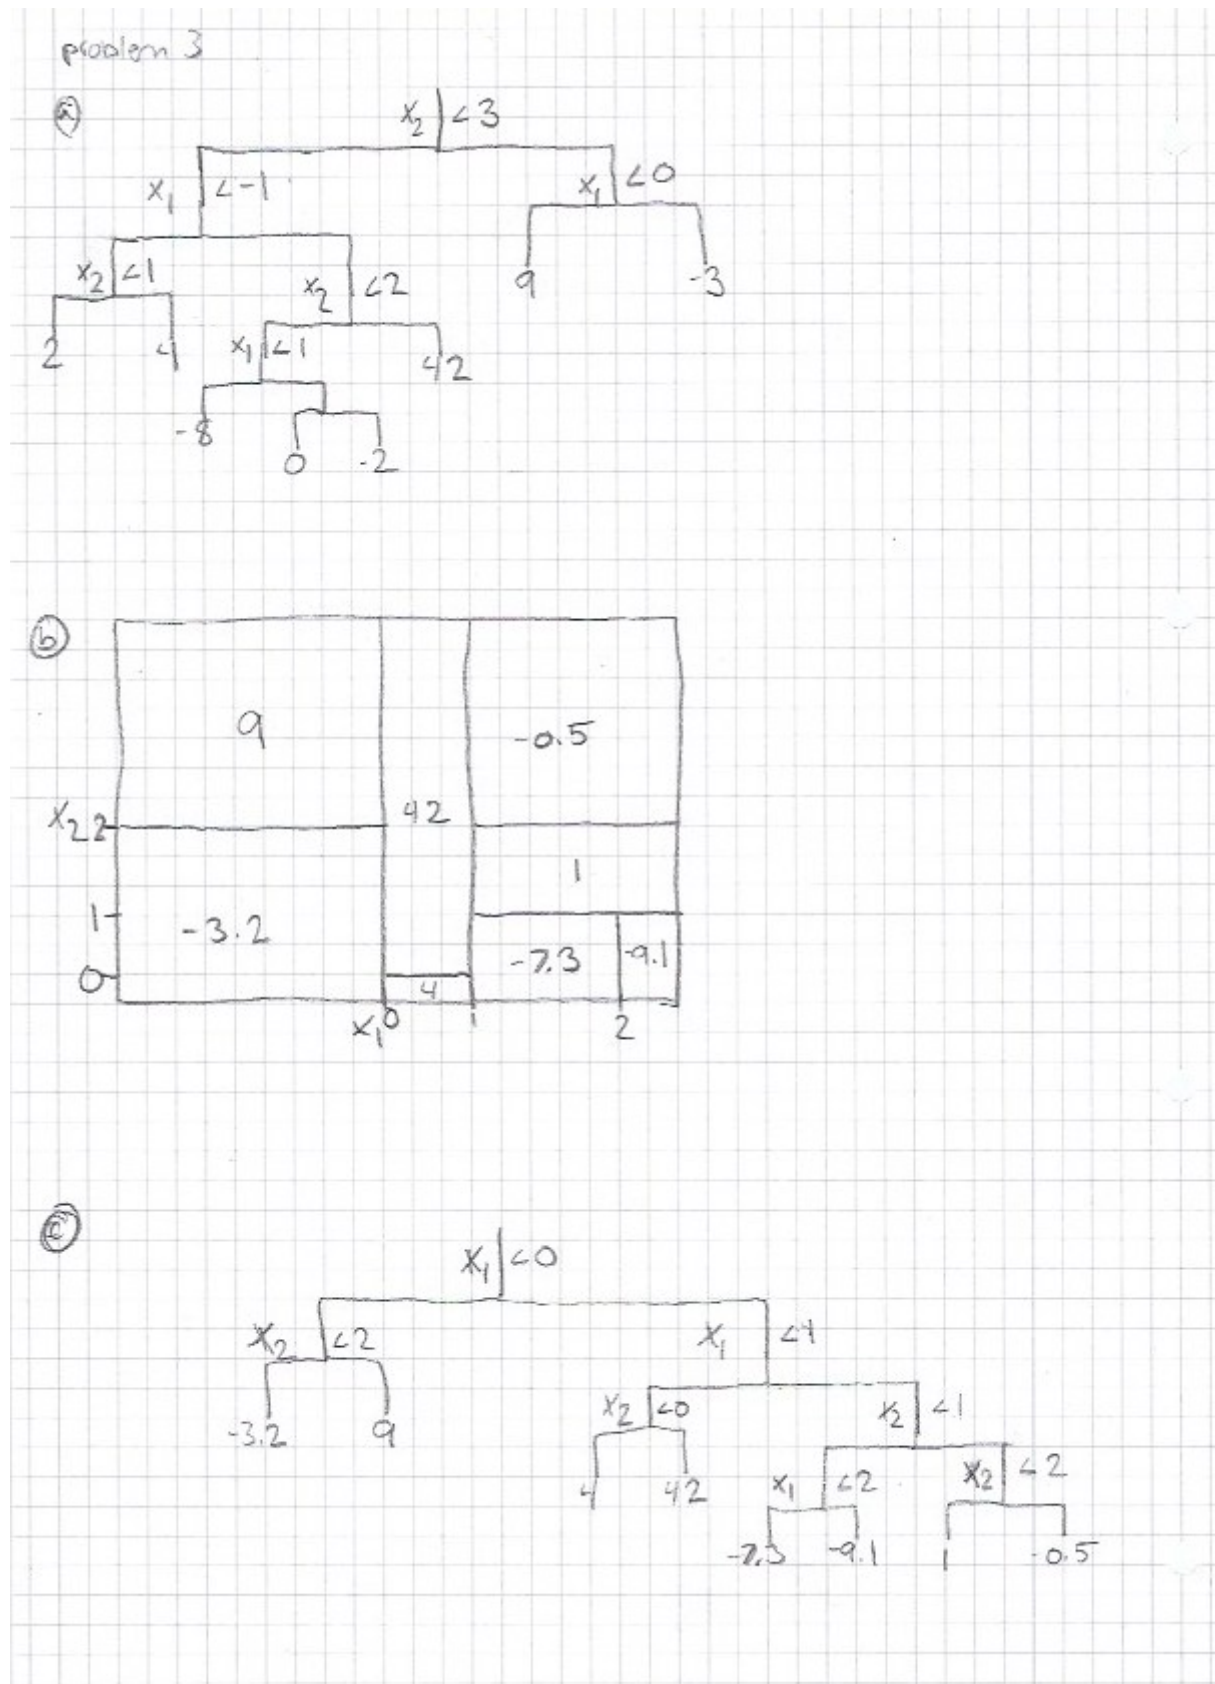 problem 3
a
x₂ <3
x₁ <-1 x₁ <0
x₂ <1 x₂ <2 9 -3
2 4 x₁ <1 42
-8
0 -2
b
9 -0.5
42
x₂ 2
1
1 -3.2
-7.3 -9.1
0
4
x₁ 0 1 2
c
x₁ <0
x₂ <2 x₁ <1
x₂ <0 x₂ <1
-3.2 9
4 42 x₁ <2 x₂ <2
-7.3 -9.1 1 -0.5